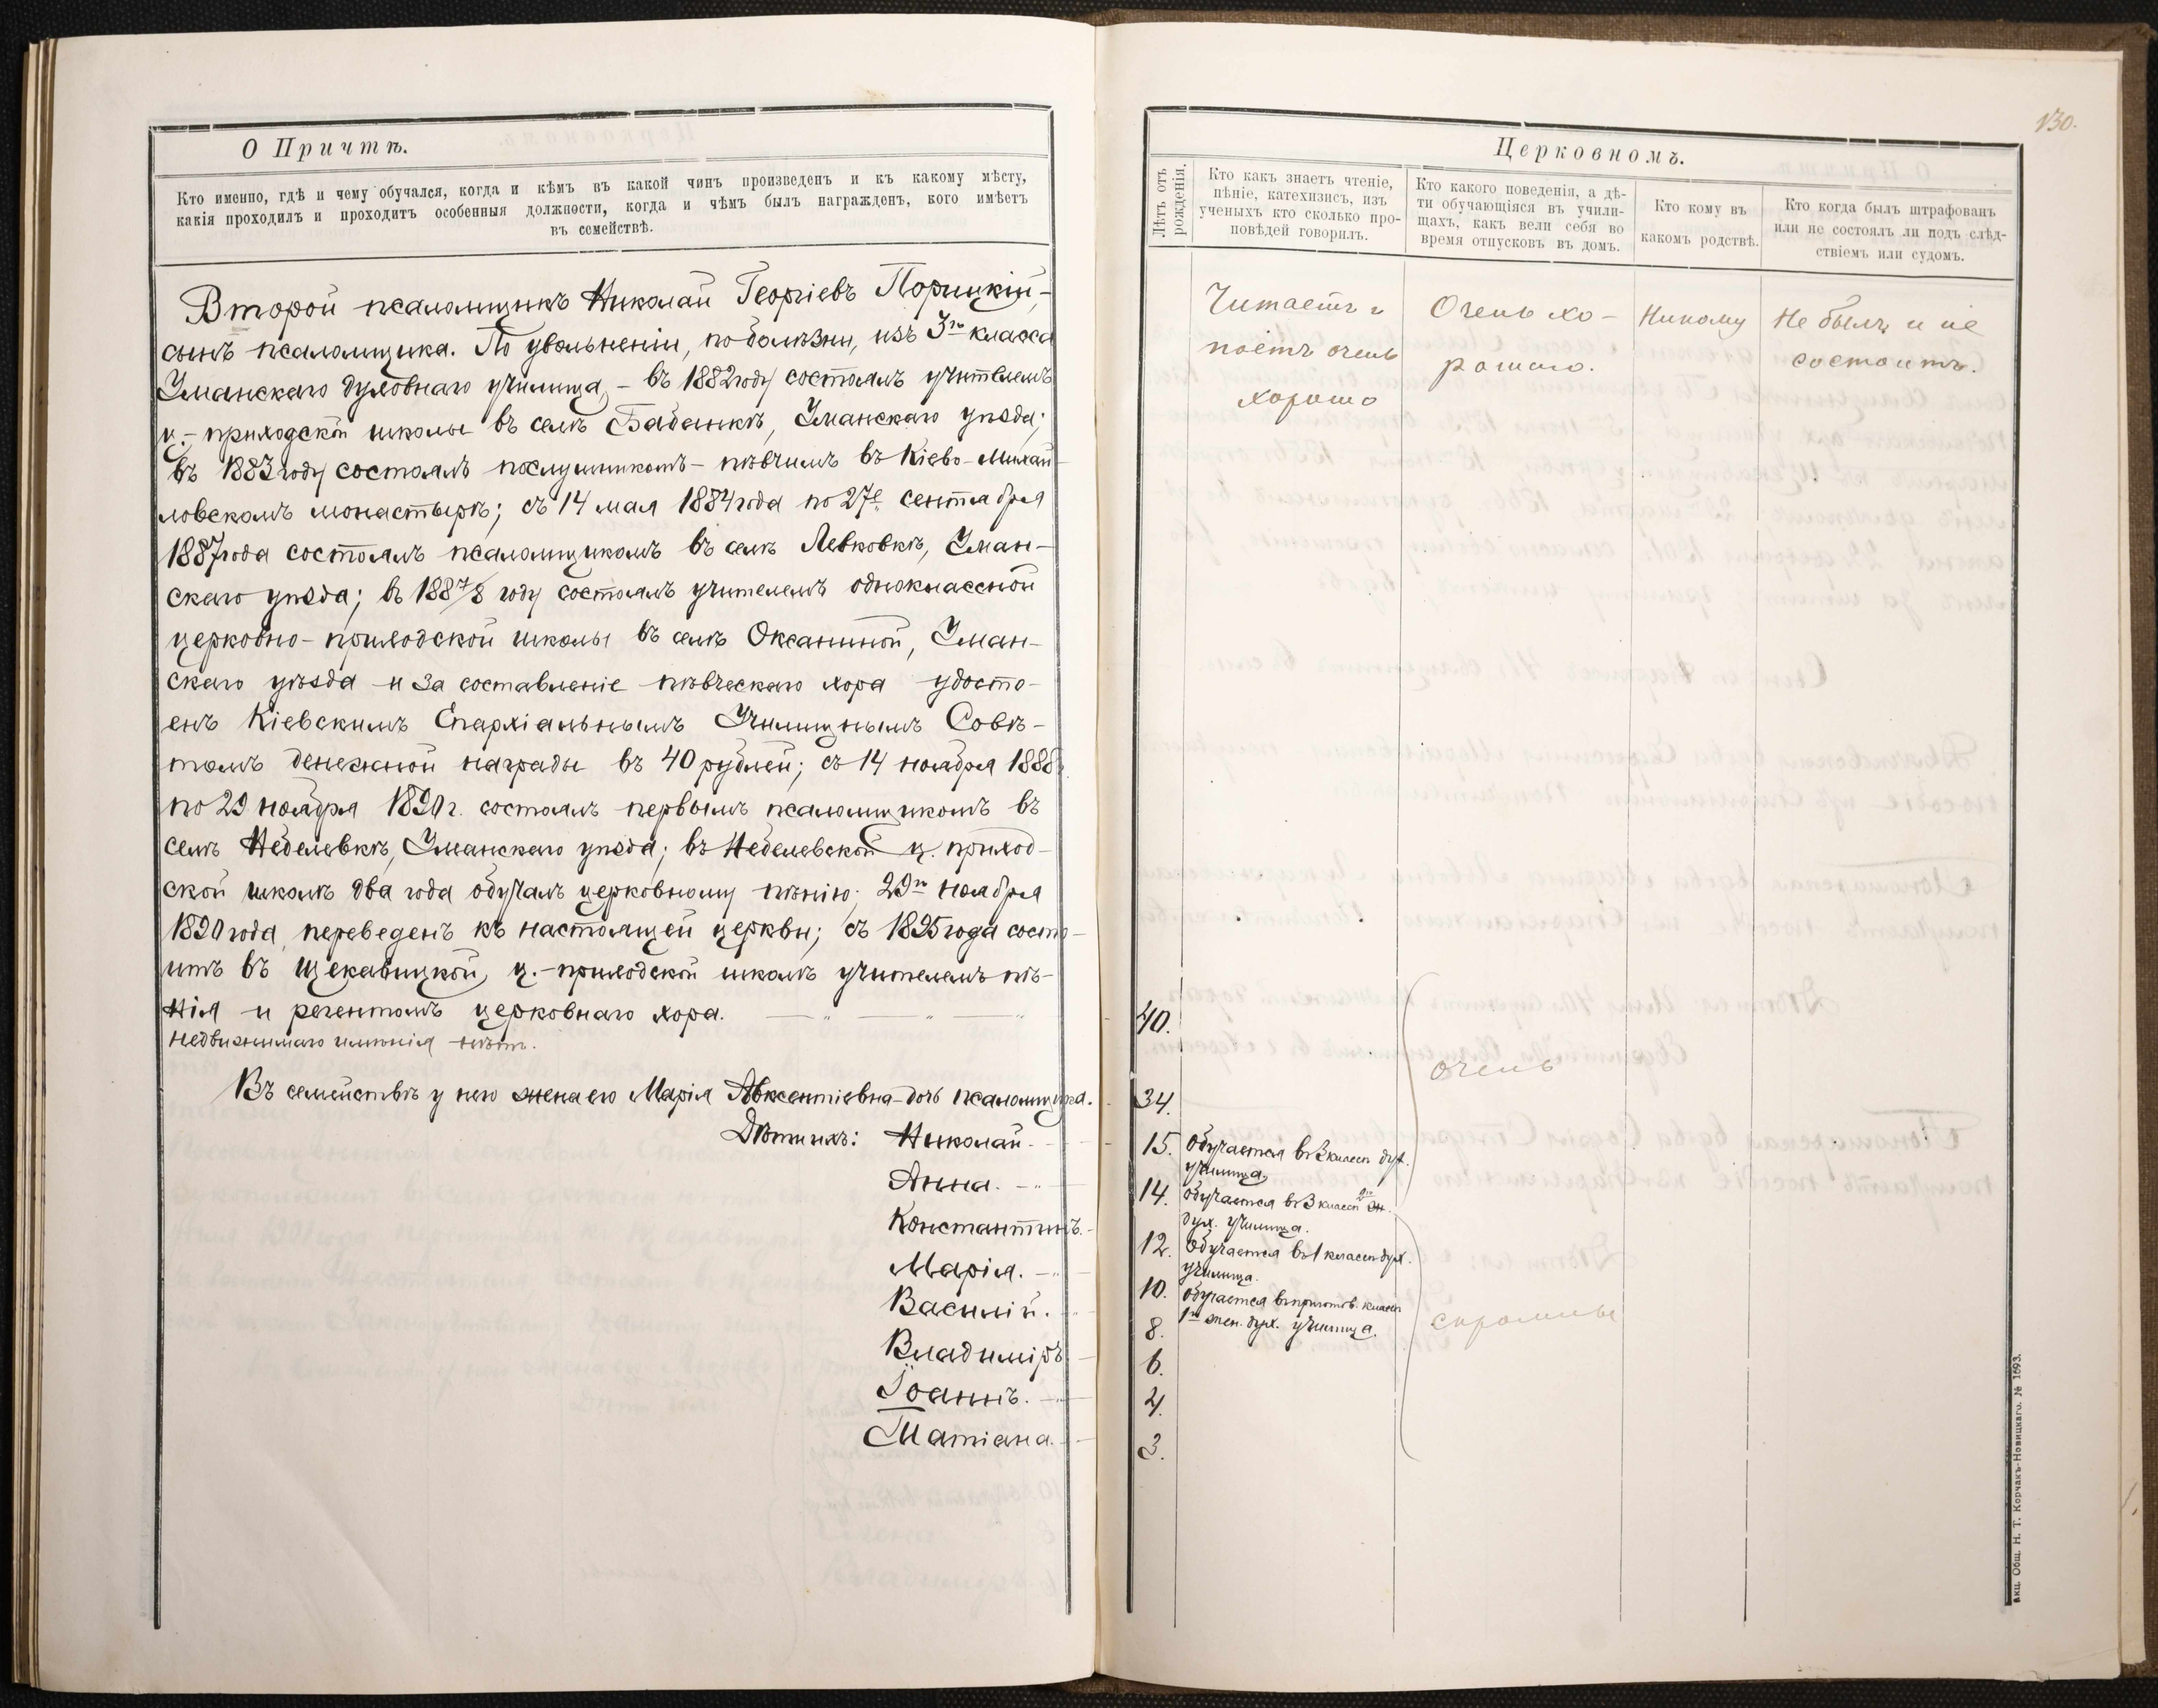 О Причтѣ.
Кто именно, гдѣ и чему обучался, когда и кѣмъ въ какой чинъ произведенъ и къ какому мѣсту,
какія проходилъ и проходитъ особенныя должности, когда и чѣмъ былъ награжденъ, кого имѣетъ
въ семействѣ.
Второй псаломщикъ Николай Георгіевъ Порицкій,-
сынъ псаломщика. По увольненіи, по болѣзни, изъ 3го класса
Уманскаго духовнаго училища, - въ 1882 году состоялъ учителемъ
ц.-приходской школы въ селѣ Бабанкѣ, Уманскаго уѣзда;
въ 1883 году состоялъ послушникомъ-пѣвчимъ въ Кіево-Михай-
ловскомъ монастырѣ; съ 14 мая 1884 года по 27е сентября
1887 года состоялъ псаломщикомъ въ селѣ Левковкѣ, Уман-
скаго уѣзда; въ 1887/8 году состоялъ учителемъ одноклассной
церковно-приходской школы въ селѣ Оксаниной, Уман-
скаго уѣзда и за составленіе пѣвческаго хора удосто-
енъ Кіевскимъ Епархіальнымъ Училищнымъ Совѣ-
томъ денежной награды въ 40 рублей; съ 14 ноября 1888 г.
по 29 ноября 1890 г. состоялъ первымъ псаломщикомъ въ
селѣ Неделевкѣ, Уманскаго уѣзда; въ Неделевской ц. приход-
ской школѣ два года обучалъ церковному пѣнію; 29го ноября
1890 года переведенъ къ настоящей церкви; съ 1895 года состо-
итъ въ Щекавицкой ц.-приходской школѣ учителемъ пѣ-
нія и регентомъ церковнаго хора.
недвижимаго имѣнія нѣтъ.
Въ семействѣ у него жена его Марія Авксентіевна-дочь псаломщика.
Дѣти ихъ: Николай.
Анна.
Константинъ.
Марія.
Василій.
Владиміръ
Іоаннъ.
Татіана.
130.
Церковномъ.
Лѣтъ отъ
рожденія.
Кто какъ знаетъ чтеніе,
пѣніе, катехизисъ, изъ
ученыхъ кто сколько про-
повѣдей говорилъ.
Кто какого поведенія, а дѣ-
ти обучающіяся въ учили-
щахъ, какъ вели себя во
время отпусковъ въ домъ.
Кто кому въ
какомъ родствѣ.
Кто когда былъ штрафованъ
или не состоялъ ли подъ слѣд-
ствіемъ или судомъ.
Читаетъ и
поетъ очень
хорошо
Очень хо-
рошаго.
Никому
Не былъ и не
состоитъ.
40.
34.
15. обучается въ 3 классѣ дух.
училища
14. обучается въ 3 классѣ
дух. училища.
12. обучается въ 1 классѣ дух.
училища.
10. обучается въ приготов. классѣ
1го жен. дух. училища.
8.
6.
4.
3.
очень
скромны
Акц. Общ. Н. Т. Корчакъ-Новицкаго. № 1693.